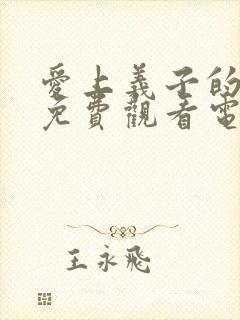 愛上義子的
免費觀看電
王永飛